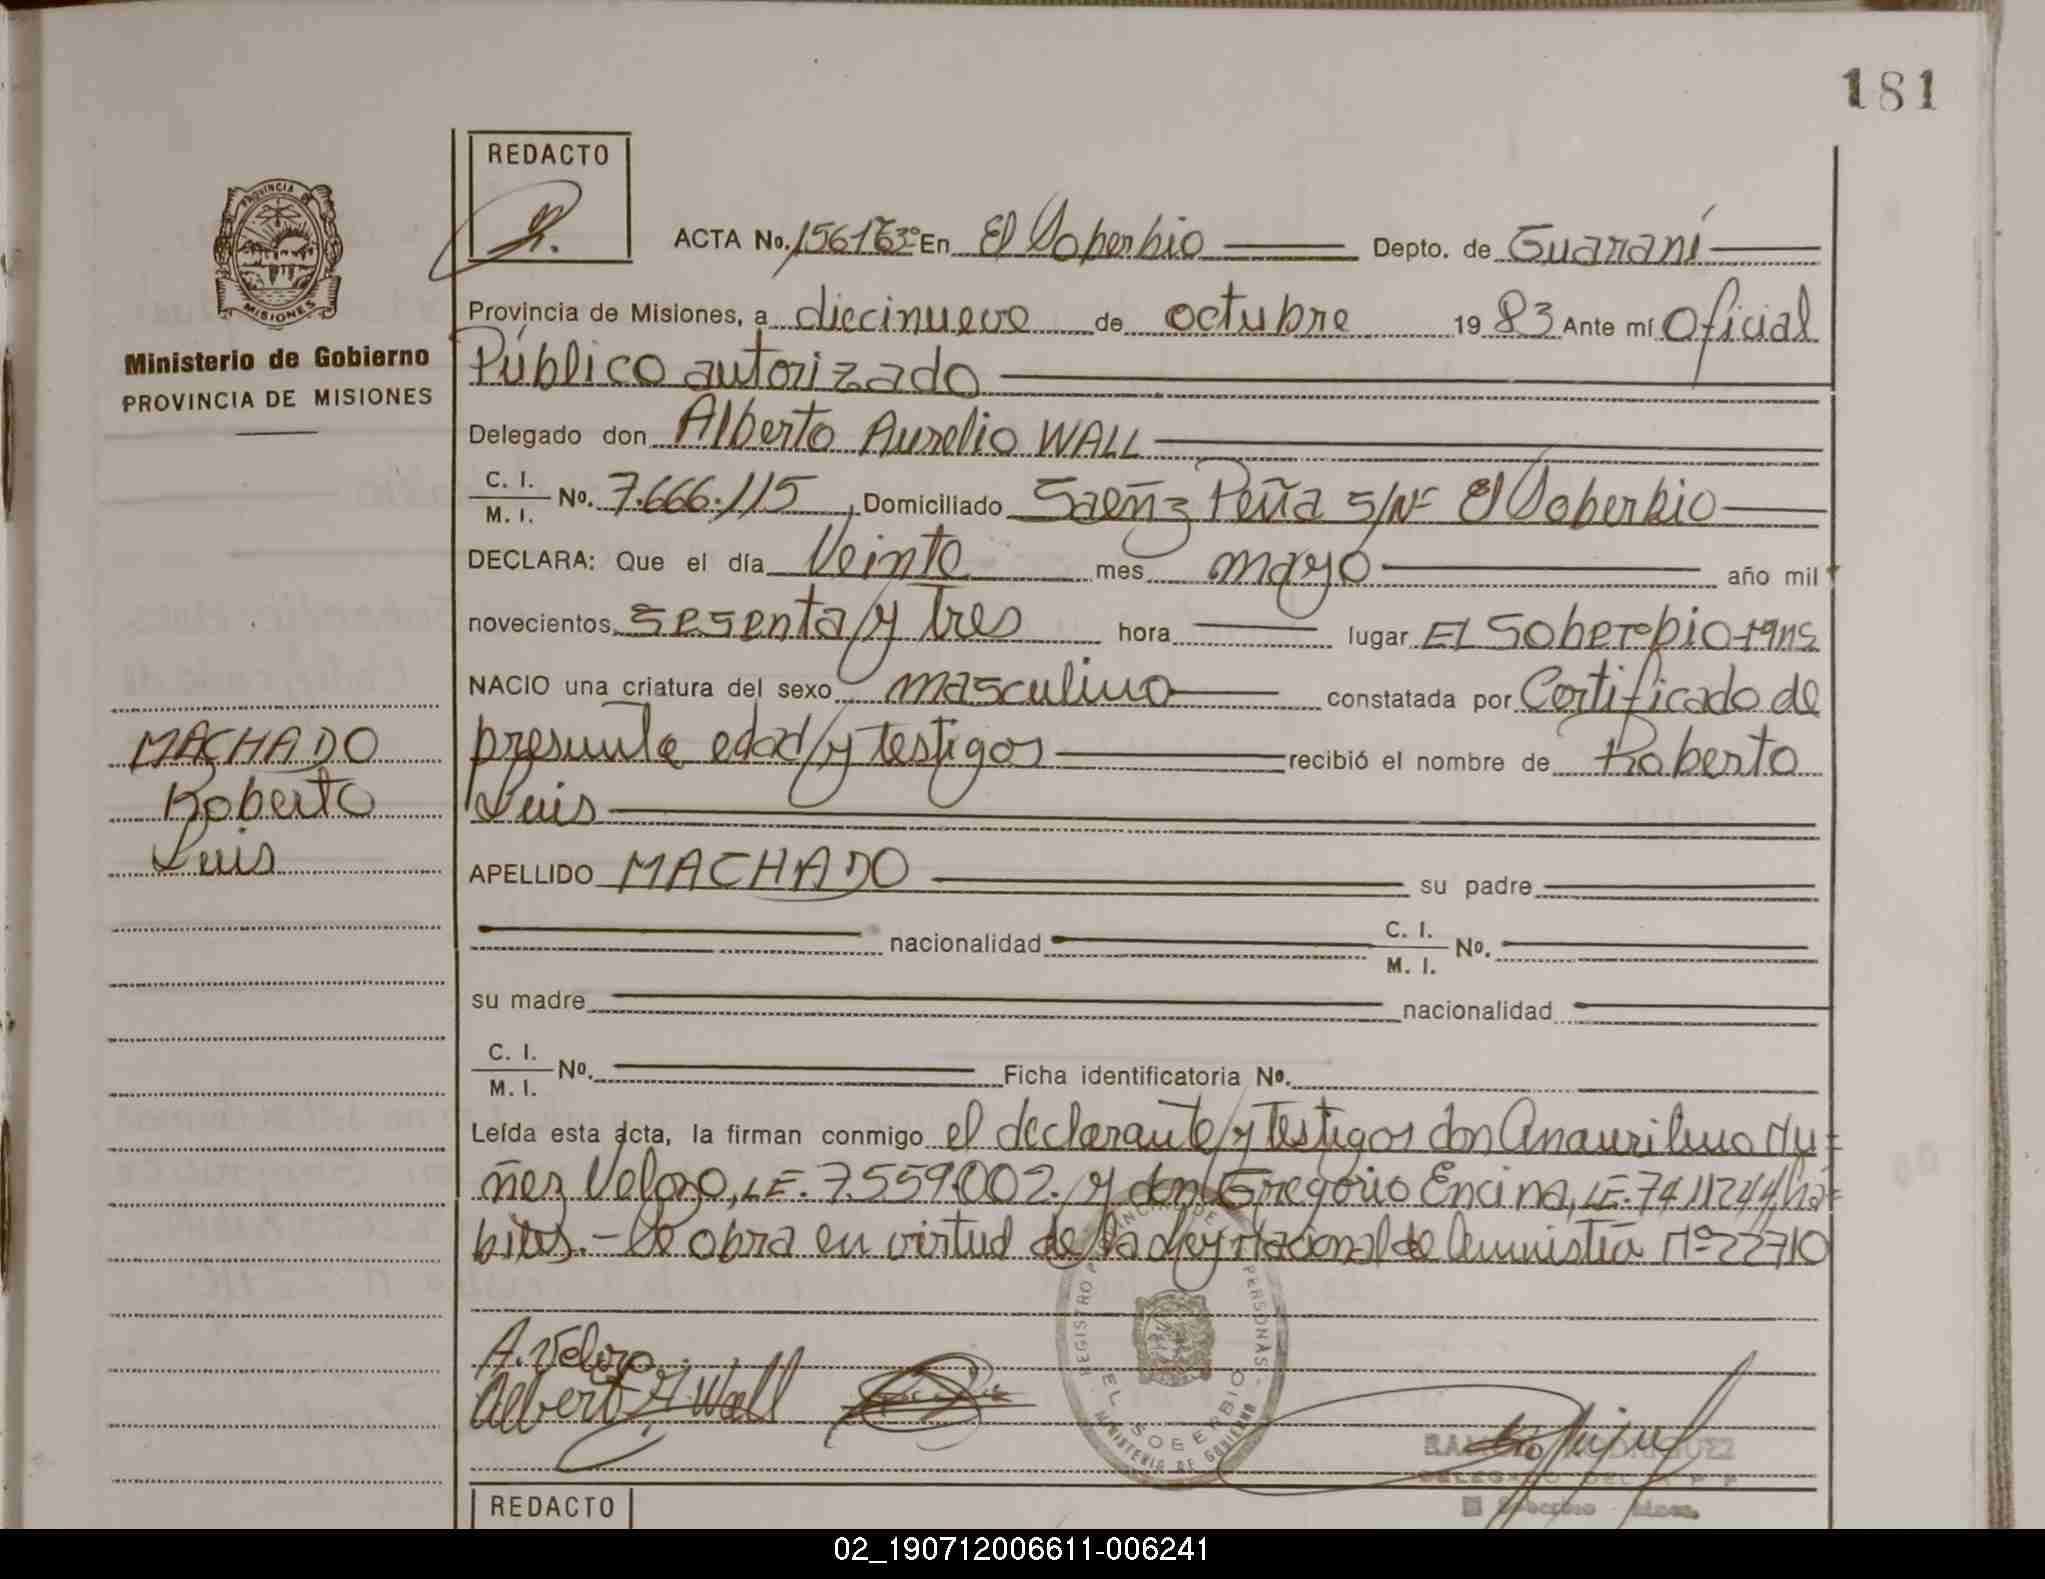 181
REDACTO
PROVINCIA
MISIONES
ACTA No. En El Soberbio Depto. de Guaraní
Provincia de Misiones, a diecinueve de octubre 1983 Ante mí Oficial
Ministerio de Gobierno
PROVINCIA DE MISIONES
Público autorizado
Delegado don Alberto Aurelio WALL
C. I.
M. I. No. 7.666.115, Domiciliado Saeñz Peña S/Nº El Soberbio
DECLARA: Que el día Veinte mes mayo año mil
novecientos sesenta y tres hora lugar El Soberbio
NACIO una criatura del sexo masculino constatada por Certificado de
MACHADO
presunta edad y testigos recibió el nombre de Roberto
Roberto
Luis
Luis
APELLIDO MACHADO su padre
nacionalidad C. I.
M. I. No.
su madre nacionalidad
C. I.
M. I. No. Ficha identificatoria No.
Leída esta acta, la firman conmigo el declarante y testigos don Anaurilino Nu-
ñez Velozo, LE. 7.559.002. y don Gregorio Encina, LE. 7411244, há-
biles.- Se obra en virtud de la Ley Nacional de Amnistía Nº 22710
A. Velozo
Albert A. Wall
REGISTRO PROVINCIAL DE PERSONAS
EL SOBERBIO
MINISTERIO DE GOBIERNO
REDACTO
02_190712006611-006241